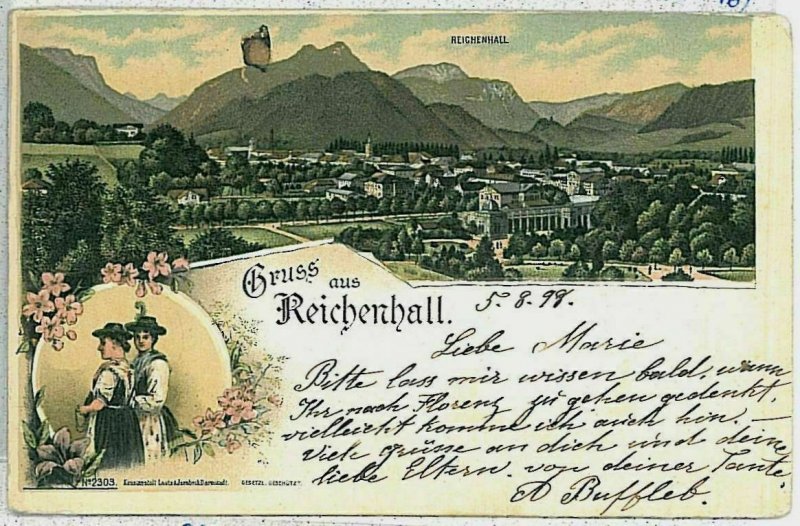 REICHENHALL
Gruss aus
Reichenhall.
5. 8. 99.
Liebe Marie
Bitte lass mir wissen bald, wann
Ihr nach Florenz zu gehen gedenkt,
vielleicht komme ich auch hin.
Viele grüsse an dich und deine
liebe Eltern. von deiner Tante
A Buffleb.
No 2303. Kunstanstalt Lautz & Darmstadt. GESETZL. GESCHÜTZT